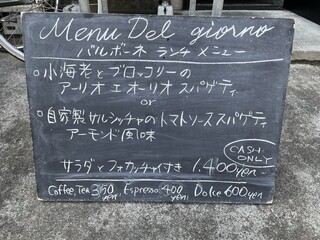 Menu Del giorno
バルボーネ ランチメニュー
○小海老とブロッコリーの
アーリオエオーリオ スパゲティ
or
○自家製サルシッチャのトマトソーススパゲティ
アーモンド風味
CASH
ONLY
サラダとフォカッチャ付き 1,400yen
Coffee, Tea 350yen, Espresso 400yen, Dolce 600yen